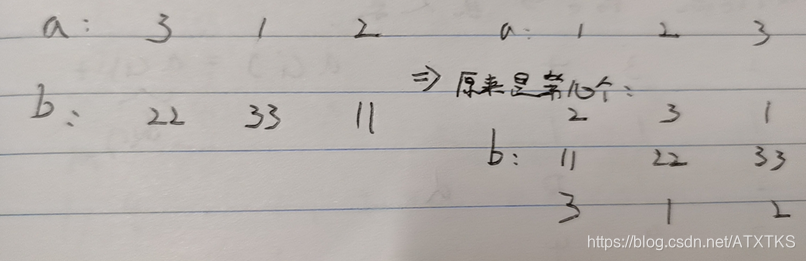 a: 3 1 2
b: 22 33 11
⇒
a: 1 2 3
原来是第几个:
2 3 1
b: 11 22 33
3 1 2
https://blog.csdn.net/ATXTKS